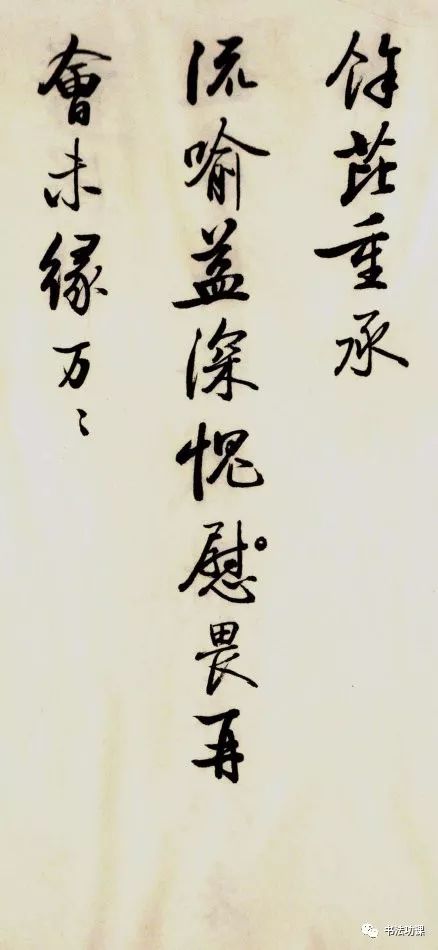 餘芘重承
流喻益深愧慰畏再
會未緣万〻
书法功课